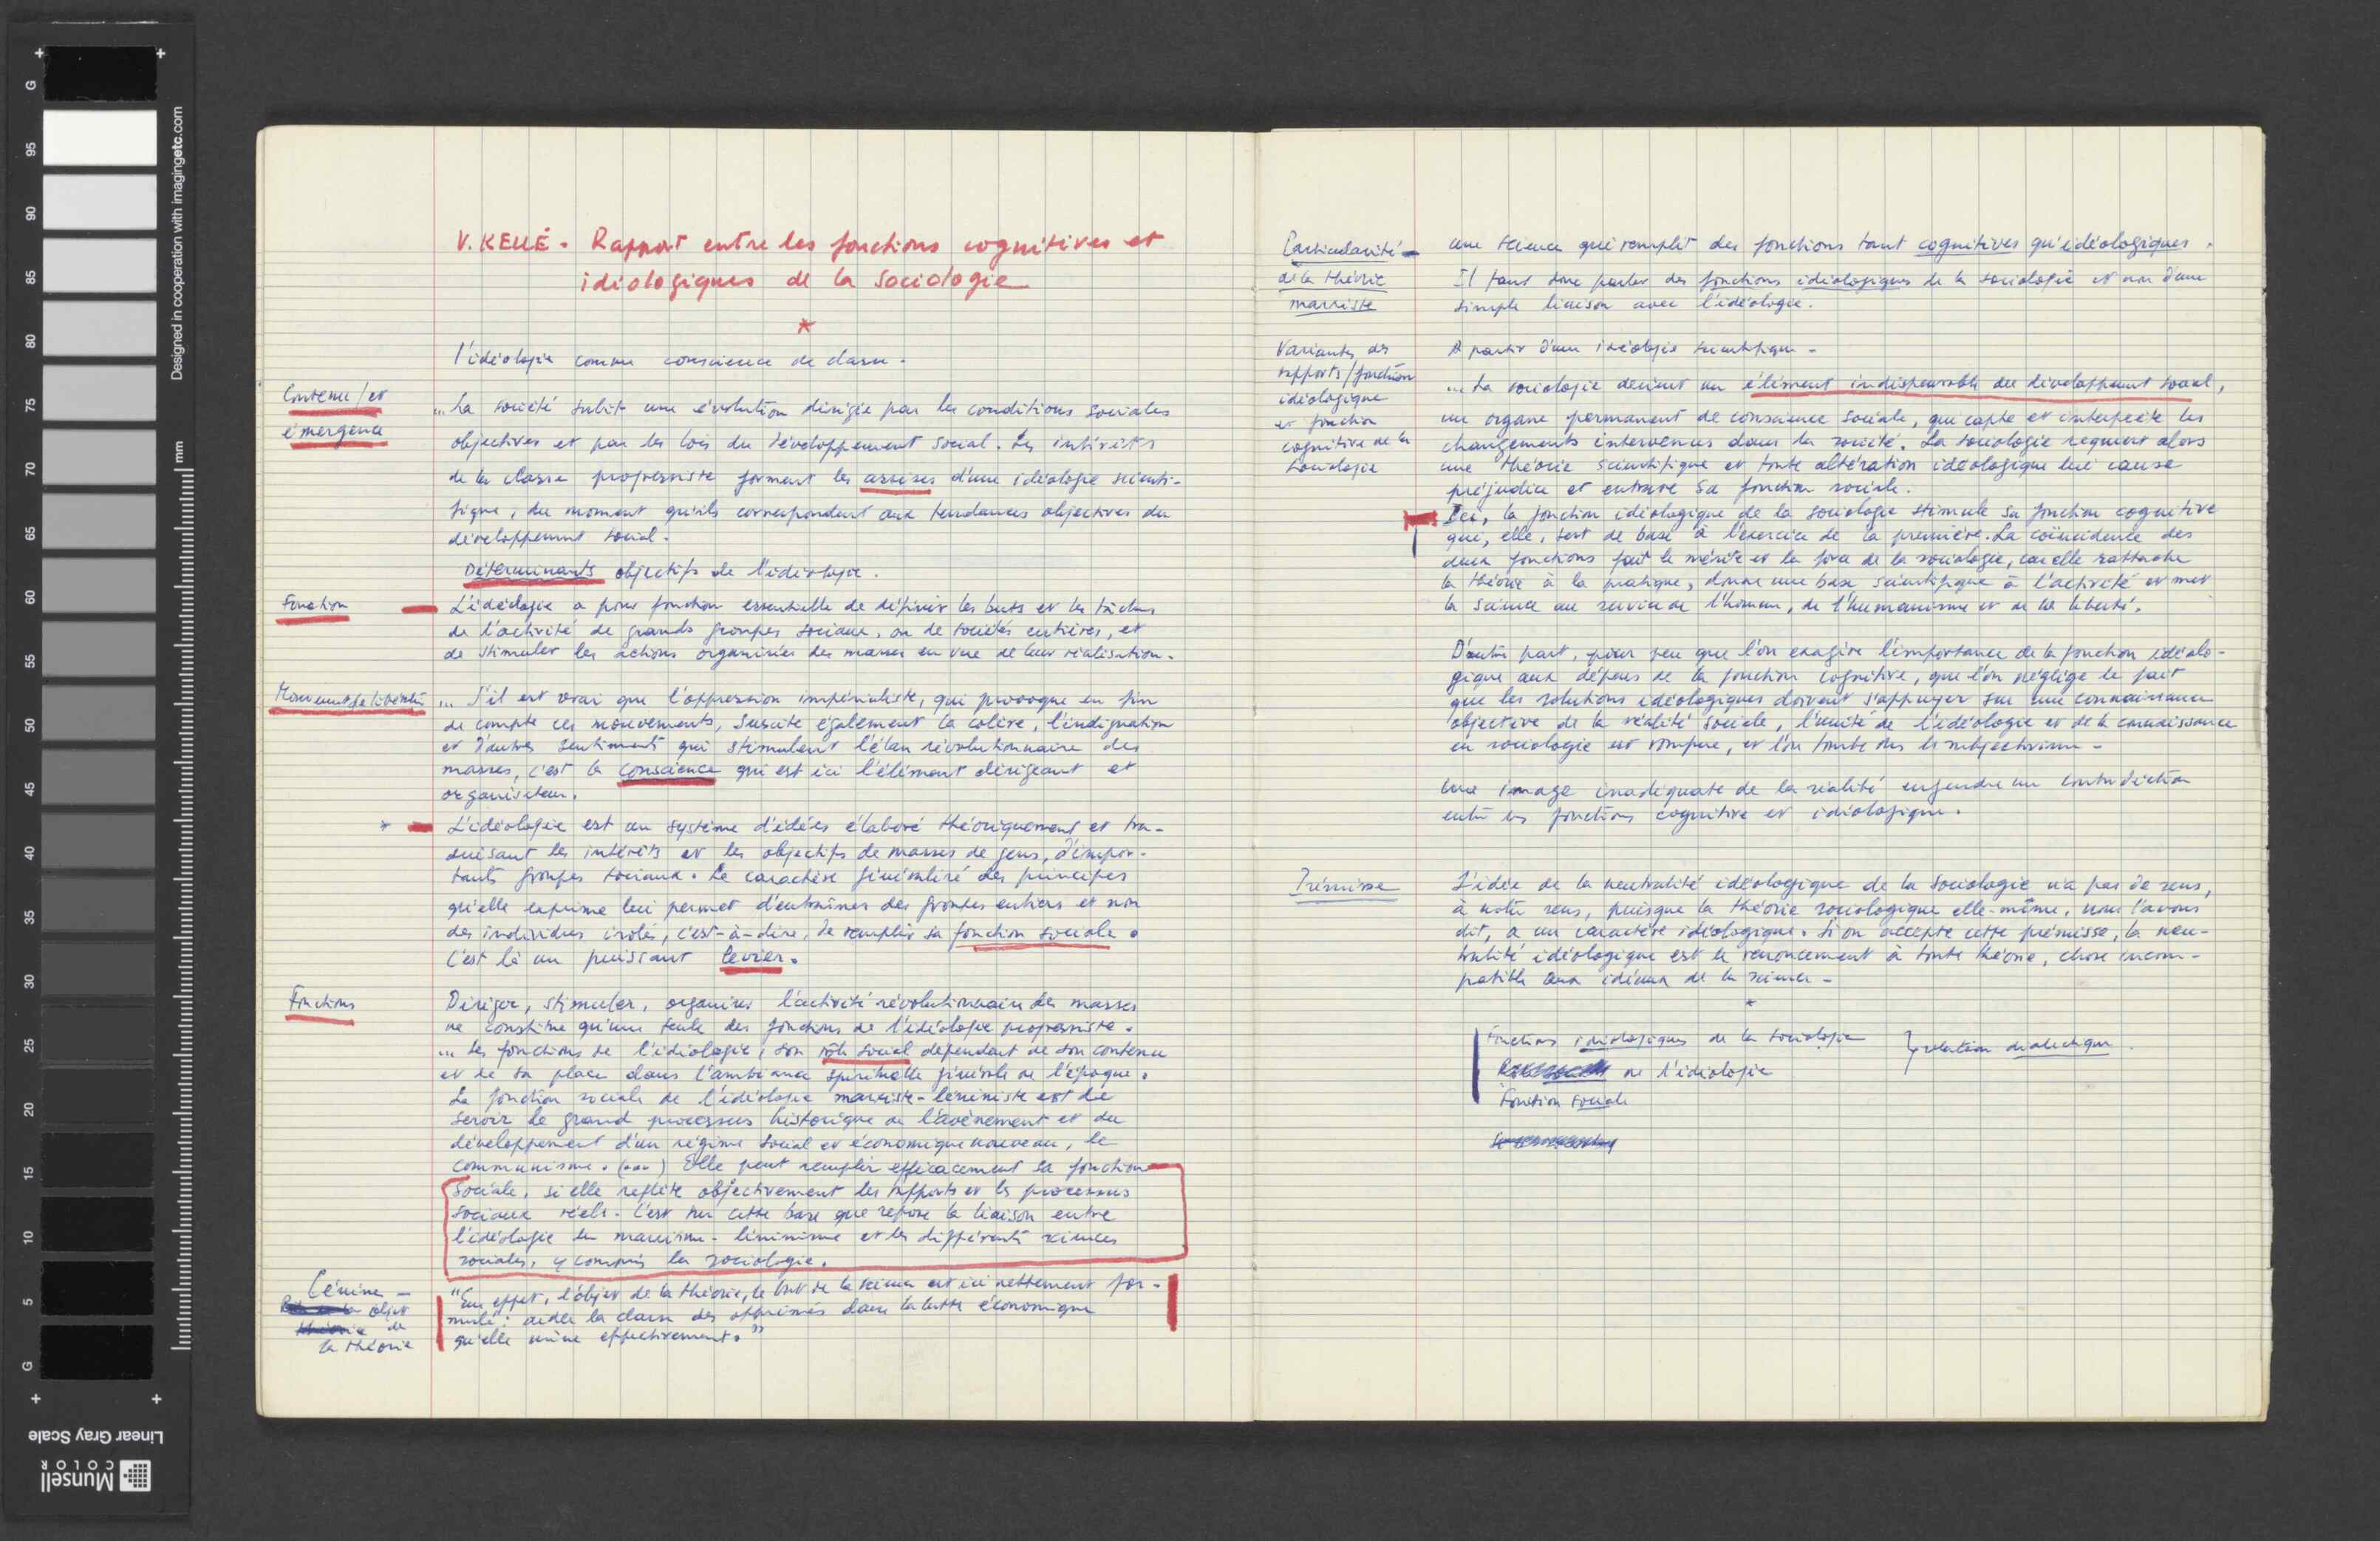 V. KELLÉ - Rapport entre les fonctions cognitives et
idéologiques de la Sociologie
*
l'idéologie comme conscience de classe.
Contenu / et
émergence
... La société subit une évolution dirigée par les conditions sociales
objectives et par les lois du développement social. Les intérêts
de la classe progressiste forment les assises d'une idéologie scienti-
fique, du moment qu'ils correspondent aux tendances objectives du
développement social.
Déterminants objectifs de l'idéologie.
Fonction
L'idéologie a pour fonction essentielle de définir les buts et les tâches
de l'activité de grands groupes sociaux, ou de sociétés entières, et
de stimuler les actions organisées des masses en vue de leur réalisation.
Mouvements de libération
... S'il est vrai que l'oppression impérialiste, qui provoque en fin
de compte ces mouvements, suscite également la colère, l'indignation
et d'autres sentiments qui stimulent l'élan révolutionnaire des
masses, c'est la conscience qui est ici l'élément dirigeant et
organisateur.
*
L'idéologie est un système d'idées élaboré théoriquement et tra-
duisant les intérêts et les objectifs de masses de gens, d'impor-
tants groupes sociaux. Le caractère généralisé des principes
qu'elle exprime lui permet d'entraîner des groupes entiers et non
des individus isolés, c'est-à-dire, de remplir sa fonction sociale.
C'est là un puissant levier.
Fonctions
Diriger, stimuler, organiser l'activité révolutionnaire des masses
ne constitue qu'une seule des fonctions de l'idéologie progressiste.
... Les fonctions de l'idéologie, son rôle social dépendant de son contenu
et de sa place dans l'ambiance spirituelle générale de l'époque.
La fonction sociale de l'idéologie marxiste-léniniste est de
servir le grand processus historique de l'avènement et du
développement d'un régime social et économique nouveau, le
communisme. (...) Elle peut remplir efficacement sa fonction
sociale, si elle reflète objectivement les rapports et les processus
sociaux réels. C'est sur cette base que repose la liaison entre
l'idéologie du marxisme-léninisme et les différentes sciences
sociales, y compris la sociologie.
Lénine -
objet
de
la théorie
"En effet, l'objet de la théorie, le but de la science est ici nettement for-
mulé : aider la classe des opprimés dans la lutte économique
qu'elle mène effectivement."
Particularité
de la théorie
marxiste
une science qui remplit des fonctions tant cognitives qu'idéologiques.
Il faut donc parler des fonctions idéologiques de la sociologie et non d'une
simple liaison avec l'idéologie.
Variantes des
rapports / fonction
idéologique
et fonction
cognitive de la
Sociologie
A partir d'une idéologie scientifique -
... La sociologie devient un élément indispensable du développement social,
un organe permanent de conscience sociale, qui capte et interprète les
changements intervenus dans la société. La sociologie requiert alors
une théorie scientifique et toute altération idéologique lui cause
préjudice et entrave sa fonction sociale.
Ici, la fonction idéologique de la sociologie stimule sa fonction cognitive
qui, elle, sert de base à l'exercice de la première. La coïncidence des
deux fonctions fait le mérite et la force de la sociologie, car elle rattache
la théorie à la pratique, donne une base scientifique à l'activité et met
la science au service de l'homme, de l'humanisme et de la liberté.
D'autre part, pour peu que l'on exagère l'importance de la fonction idéolo-
gique aux dépens de la fonction cognitive, que l'on néglige le fait
que les solutions idéologiques doivent s'appuyer sur une connaissance
objective de la réalité sociale, l'unité de l'idéologie et de la connaissance
en sociologie est rompue, et l'on tombe dans le subjectivisme -
Une image inadéquate de la réalité engendre une contradiction
entre les fonctions cognitive et idéologique.
Prémisse
L'idée de la neutralité idéologique de la sociologie n'a pas de sens,
à notre sens, puisque la théorie sociologique elle-même, nous l'avons
dit, a un caractère idéologique. Si on accepte cette prémisse, la neu-
tralité idéologique est le renoncement à toute théorie, chose incom-
patible aux idéaux de la science -
*
Fonctions idéologiques de la sociologie } relation dialectique.
de l'idéologie
Fonction sociale
Designed in cooperation with imagingetc.com
mm
G 95 90 85 80 75 70 65 60 55 50 45 40 35 30 25 20 15 10 5 G
Linear Gray Scale
Munsell
COLOR